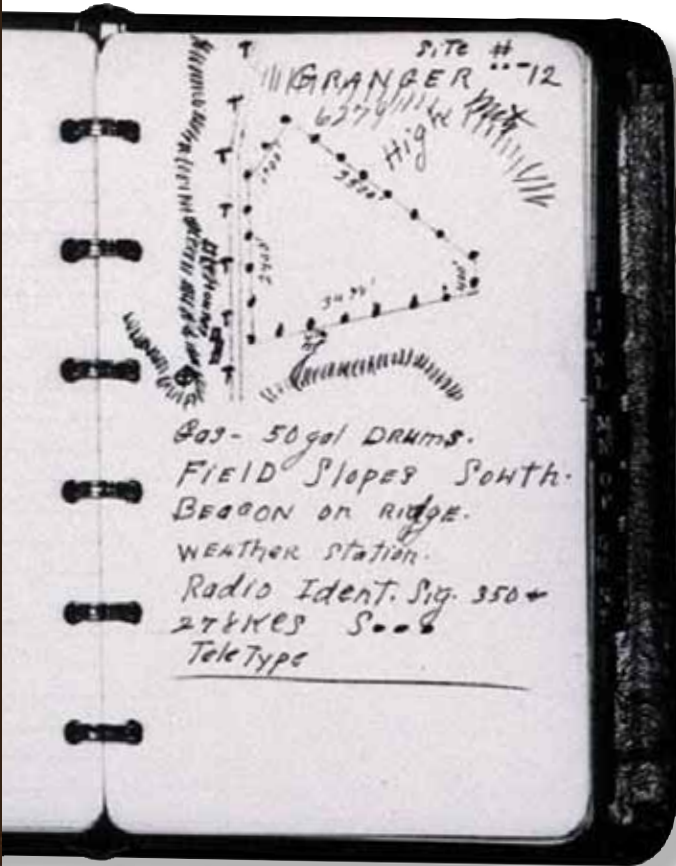 SITE #
..-12
GRANGER
6274
High
3800'
3476'
Gas - 50 gal DRUMS.
FIELD Slopes South.
BEACON on Ridge.
WEATHER Station.
Radio Ident. Sig. 350 &
278 KCS S...
TeleType